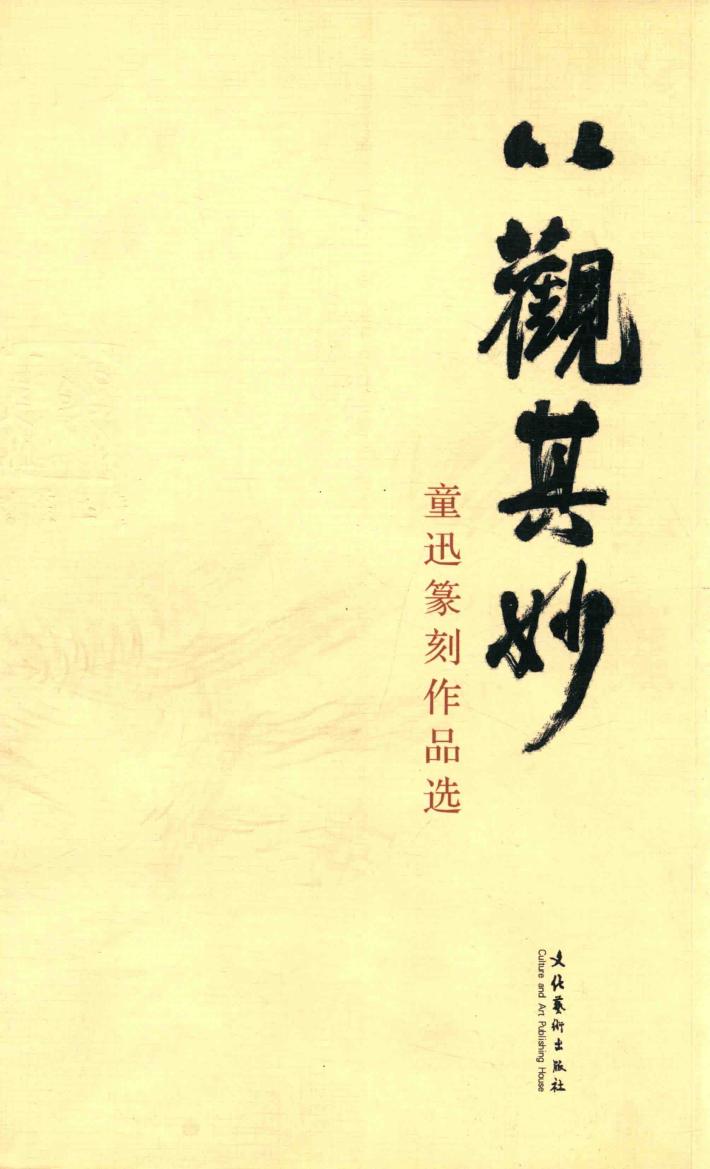 以觀其妙
童迅篆刻作品选
文化藝術出版社
Culture and Art Publishing House